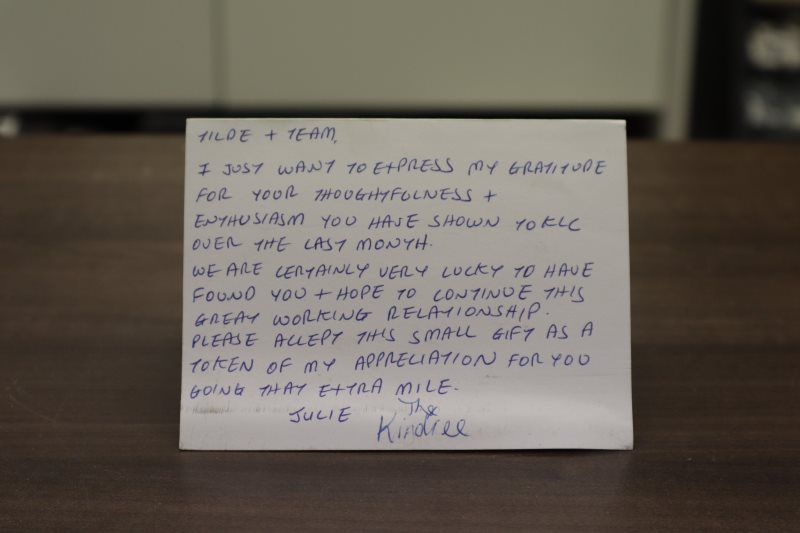 TILDE + TEAM,
I JUST WANT TO EXPRESS MY GRATITUDE
FOR YOUR THOUGHTFULNESS +
ENTHUSIASM YOU HAVE SHOWN TO KLC
OVER THE LAST MONTH.
WE ARE CERTAINLY VERY LUCKY TO HAVE
FOUND YOU + HOPE TO CONTINUE THIS
GREAT WORKING RELATIONSHIP.
PLEASE ACCEPT THIS SMALL GIFT AS A
TOKEN OF MY APPRECIATION FOR YOU
GOING THAT EXTRA MILE.
JULIE The